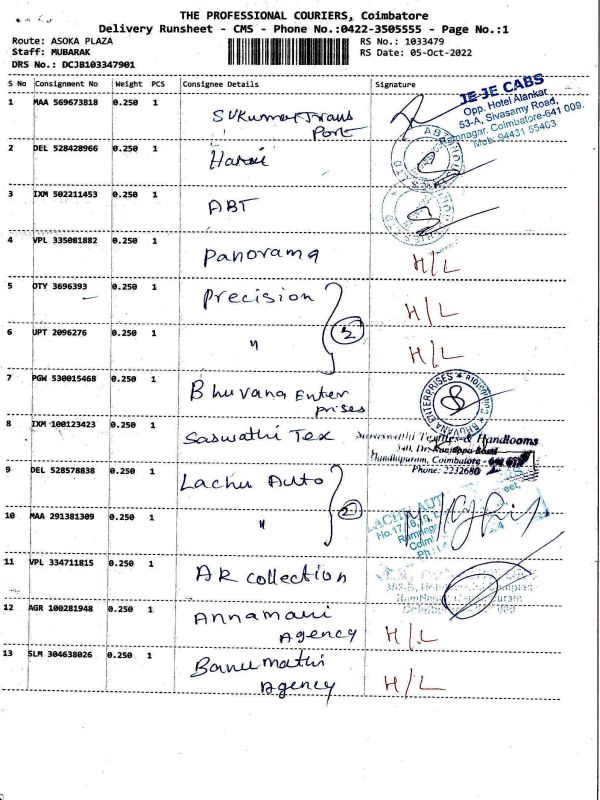 THE PROFESSIONAL COURIERS, Coimbatore
Delivery Runsheet - CMS - Phone No.:0422-3505555 - Page No.:1
Route: ASOKA PLAZA
RS No.: 1033479
Staff: MUBARAK
RS Date: 05-Oct-2022
DRS No.: DCJB103347901
S No Consignment No Weight PCS Consignee Details Signature
1 MAA 569673818 0.250 1 SVKumar Trans
Port
JE-JE CABS
Opp. Hotel Alankar
53-A, Sivasamy Road,
Ramnagar, Coimbatore-641 009.
Mob: 94431 55403
2 DEL 528428966 0.250 1
3 IXM 502211453 0.250 1 ABT
4 VPL 335081882 0.250 1 Panorama H/L
5 OTY 3696393 0.250 1 Precision H/L
2
6 UPT 2096276 0.250 1 " H/L
7 PGW 530015468 0.250 1 Bhuvana Enter
prises
BHUVANA ENTERPRISES
8 IXM 100123423 0.250 1 Saswathi Tex
Saraswathi Textiles & Handlooms
Gandhipuram, Coimbatore
Phone: 2232680
9 DEL 528578838 0.250 1 Lachu Auto
2
10 MAA 291381309 0.250 1 "
11 VPL 334711815 0.250 1 AR collection
12 AGR 100281948 0.250 1 Annamani
Agency H/L
13 SLM 304638026 0.250 1 Banumathi
Agency H/L